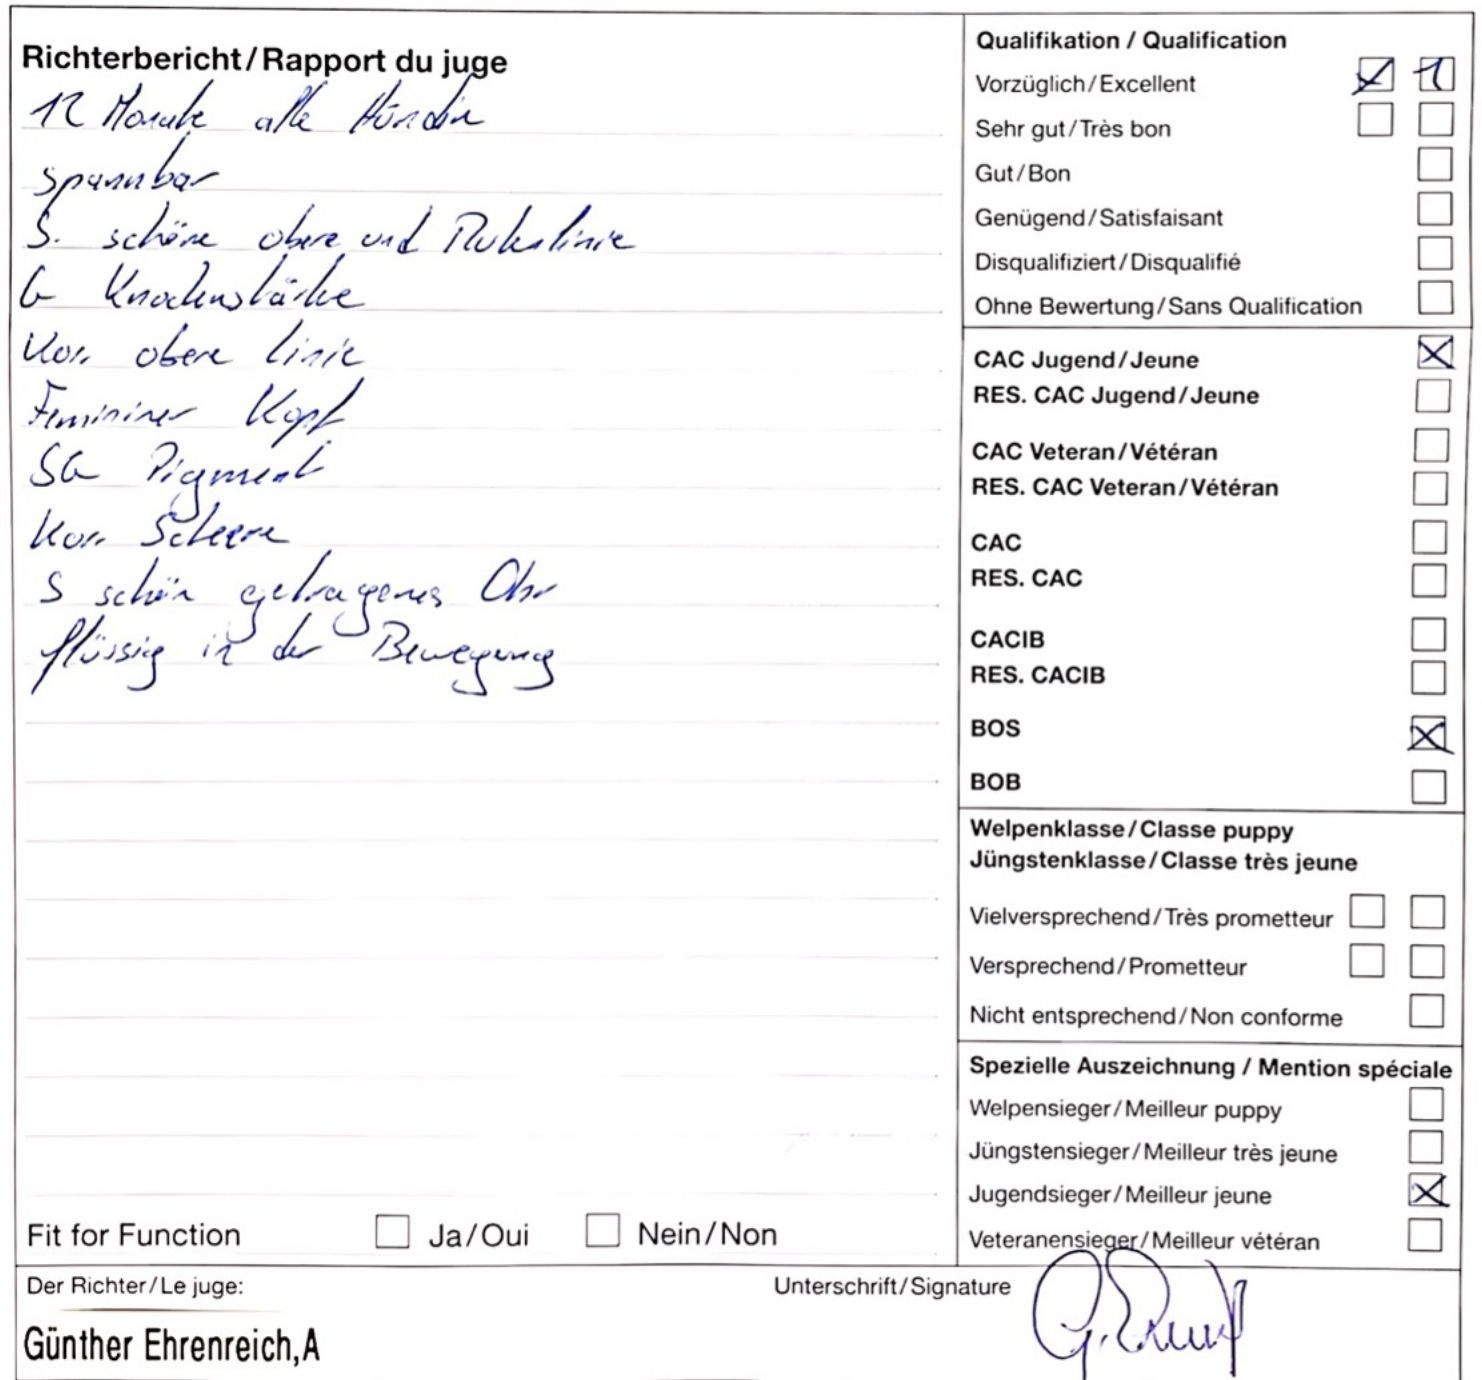 Richterbericht/Rapport du juge
12 Monate alte Hündin
spannbar
S. schöne obere und Rutenlinie
G Knochenstärke
Korr. obere Linie
Femininer Kopf
SG Pigment
Korr. Scheere
S schön getragenes Ohr
flüssig in der Bewegung
Fit for Function Ja/Oui Nein/Non
Der Richter/Le juge:
Günther Ehrenreich,A
Unterschrift/Signature
Qualifikation / Qualification
Vorzüglich/Excellent 1
Sehr gut/Très bon
Gut/Bon
Genügend/Satisfaisant
Disqualifiziert/Disqualifié
Ohne Bewertung/Sans Qualification
CAC Jugend/Jeune
RES. CAC Jugend/Jeune
CAC Veteran/Vétéran
RES. CAC Veteran/Vétéran
CAC
RES. CAC
CACIB
RES. CACIB
BOS
BOB
Welpenklasse/Classe puppy
Jüngstenklasse/Classe très jeune
Vielversprechend/Très prometteur
Versprechend/Prometteur
Nicht entsprechend/Non conforme
Spezielle Auszeichnung / Mention spéciale
Welpensieger/Meilleur puppy
Jüngstensieger/Meilleur très jeune
Jugendsieger/Meilleur jeune
Veteranensieger/Meilleur vétéran